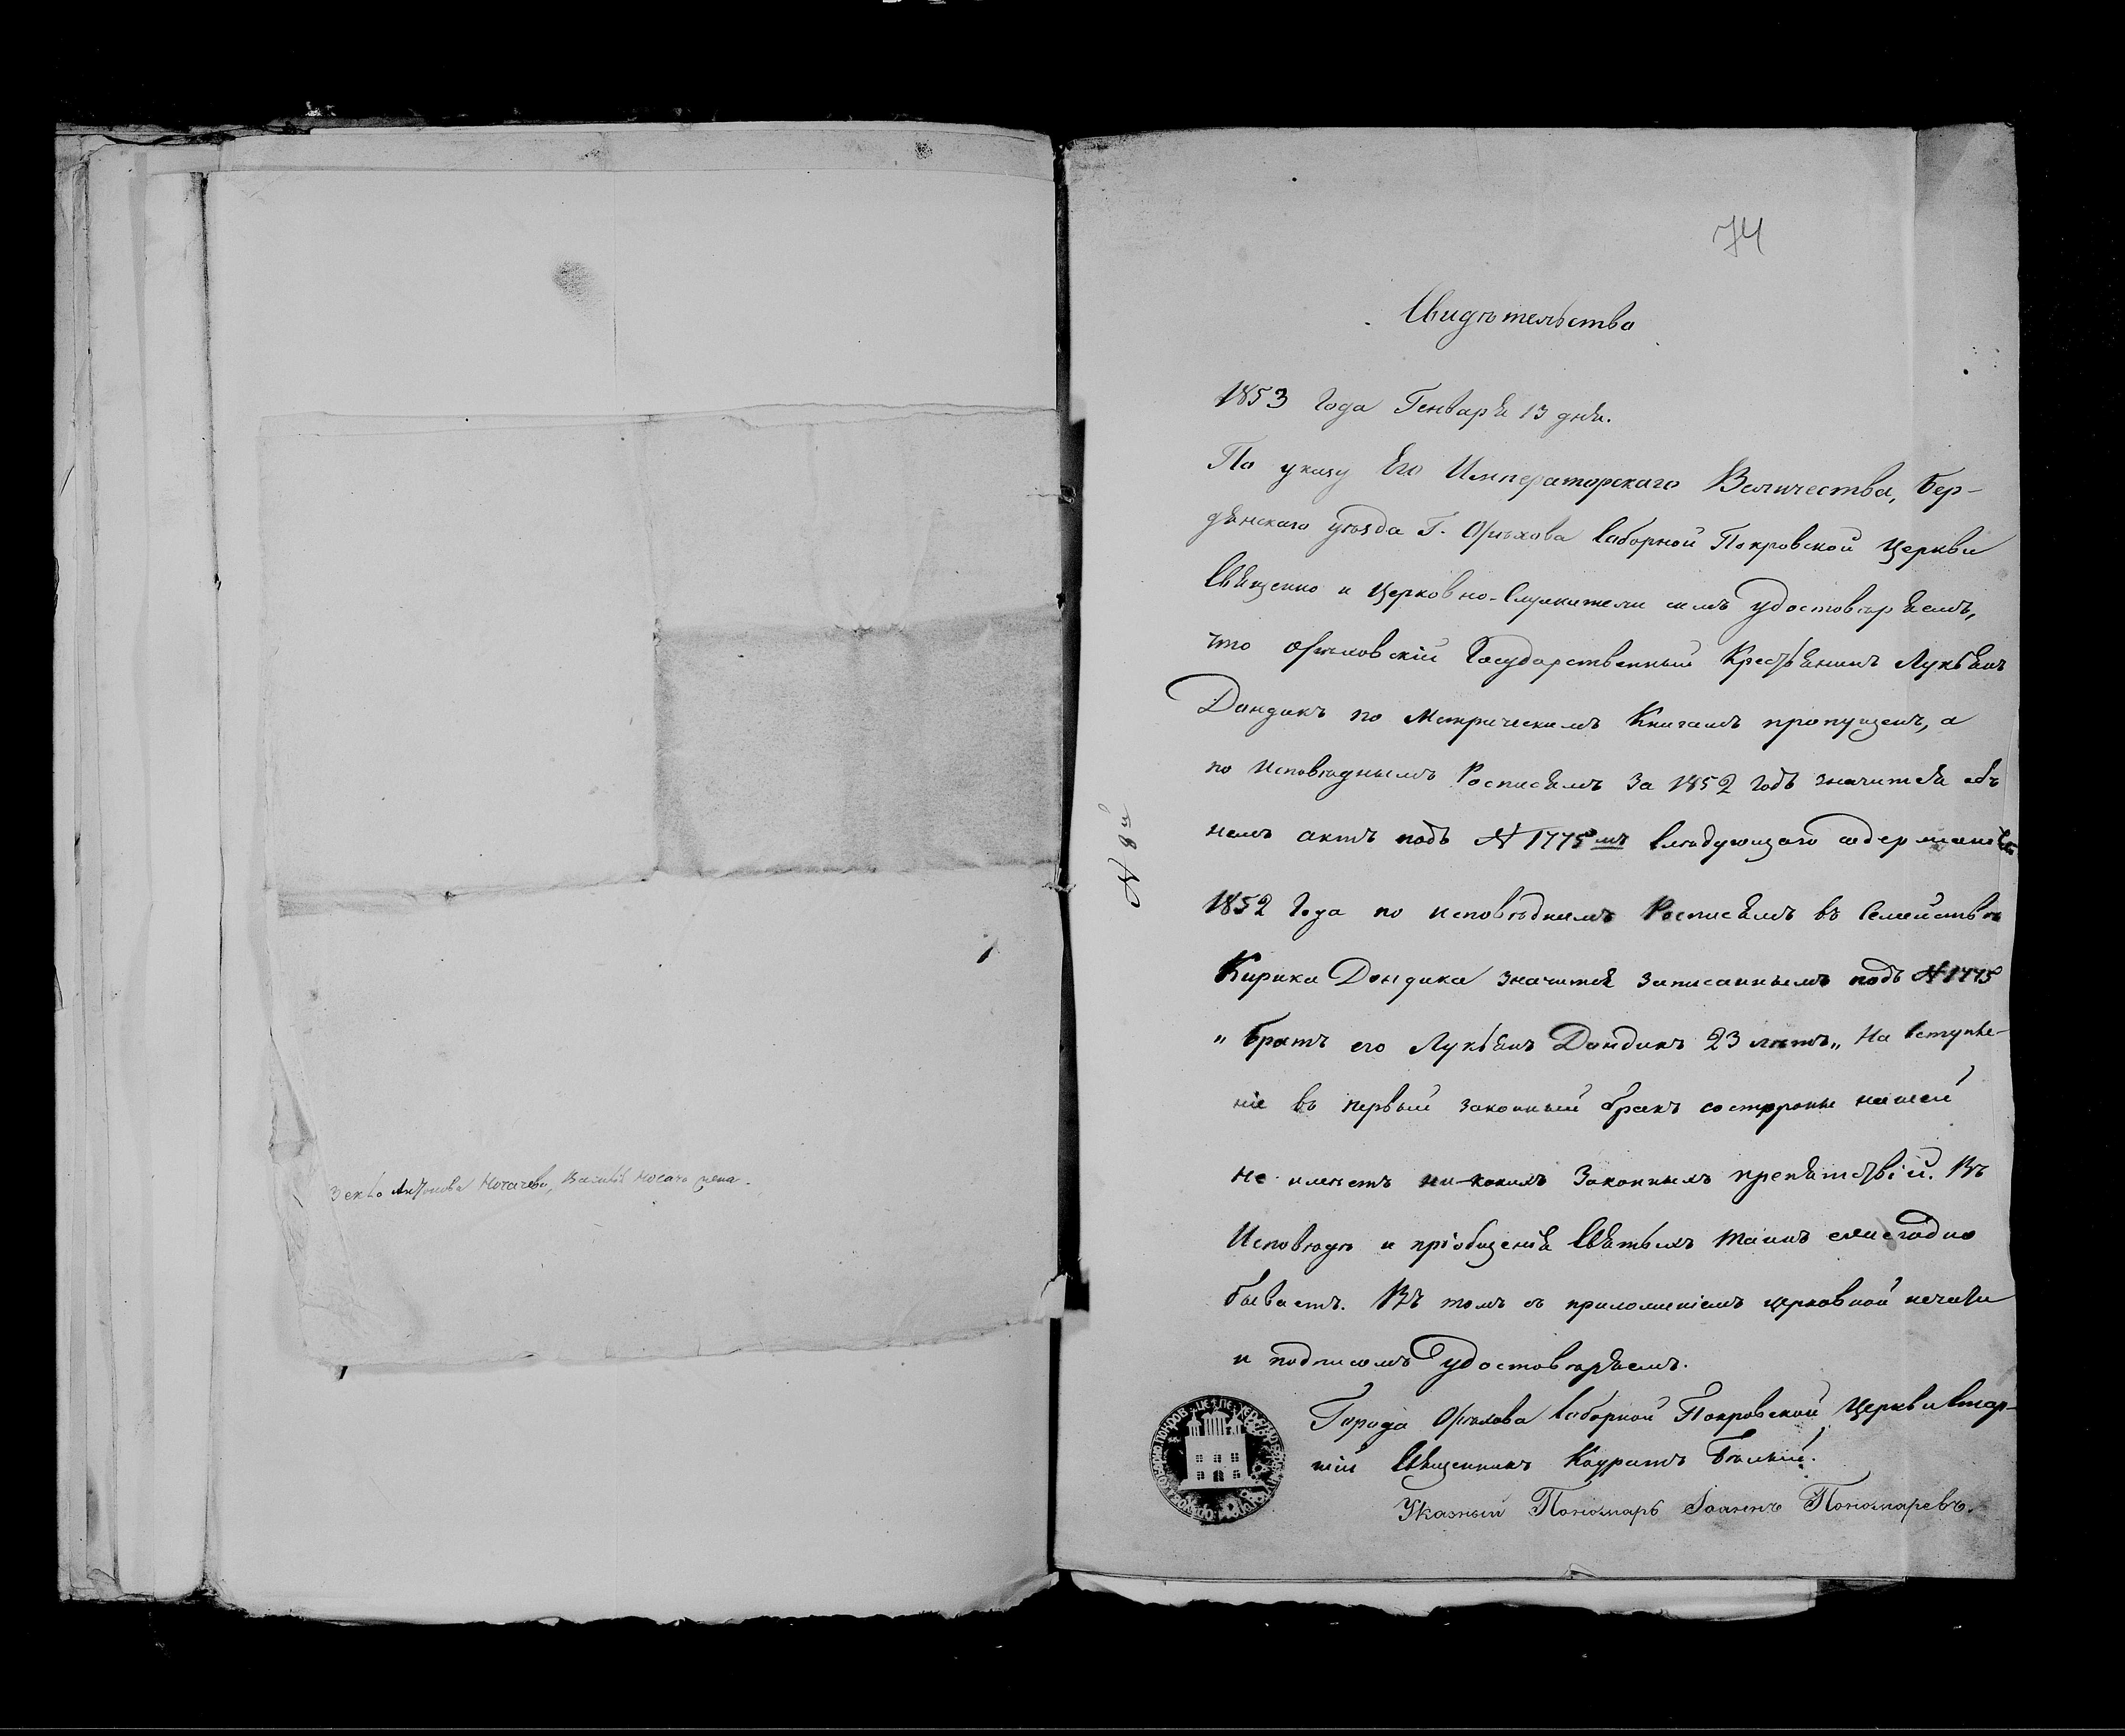 74
Свидѣтельство
1853 Года Генваря 13 дня.
По указу Его Императорскаго Величества, Бер-
дянскаго уѣзда Г. Орѣхова Соборной Покровской Церкви
Священно и Церковно-Служители симъ удостовѣряемъ,
что Орѣховскій Государственный Крестьянинъ Лукьянъ
Дондикъ по Метрическимъ Книгамъ пропущенъ, а
по Исповѣднымъ Росписямъ за 1852 годъ значится объ
немъ актъ подъ № 1775мъ слѣдующаго содержанія
1852 Года по исповѣднымъ Росписямъ въ Семействѣ
Кирика Дондика значится записаннымъ подъ № 1775
„Братъ его Лукьянъ Дондикъ 23 лѣтъ„ На вступле-
ніе въ первый законный бракъ состороны нашей
не имѣетъ ни-какихъ Законныхъ препятствій. Въ
Исповѣди и пріобщенія Святыхъ Таинъ ежегодно
бываетъ. Въ томъ съ приложеніемъ церковной печати
и подписомъ удостовѣряемъ.
Города Орѣхова Соборной Покровской Церкви Стар-
шій Священникъ Кодратъ Бѣлый.
Указный Пономарь Іоаннъ Пономаревъ.
№ 85